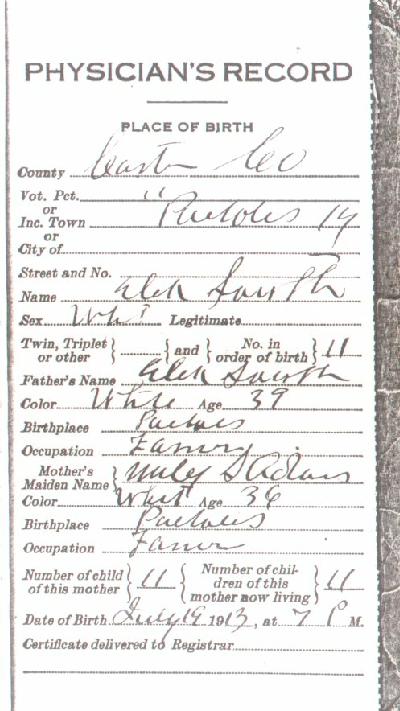 PHYSICIAN'S RECORD
PLACE OF BIRTH
County Co
Vot. Pct. "
or
Inc. Town Pactolus 14
or
City of
Street and No.
Name Alex Smith
Sex Whit Legitimate
Twin, Triplet or other } { and } { No. in order of birth } 11
Father's Name Alex Smith
Color White Age 39
Birthplace Pactolus
Occupation Farmer
Mother's Maiden Name }
Color Whit Age 36
Birthplace Pactolus
Occupation Farmer
Number of child of this mother } 11 { Number of children of this mother now living } 11
Date of Birth July 19 1913, at 7 P M.
Certificate delivered to Registrar